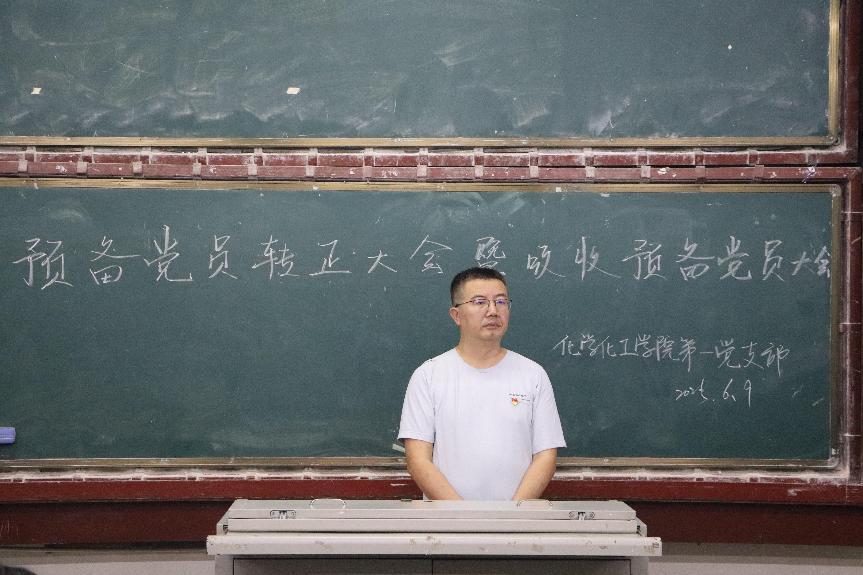 预备党员转正大会暨吸收预备党员大会
化学化工学院第一党支部
2025.6.9